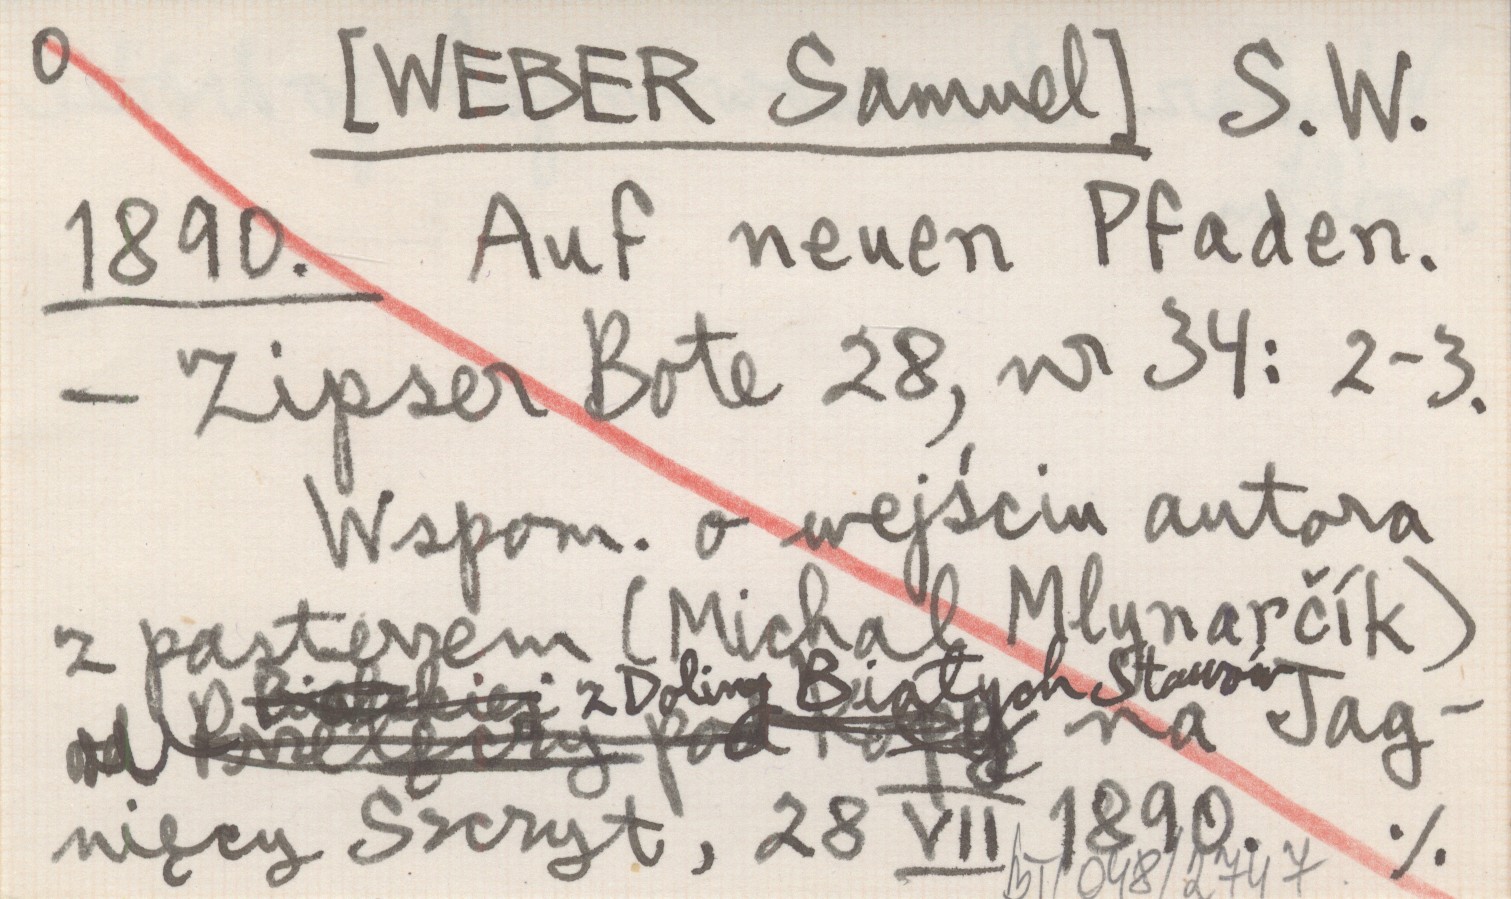 o [WEBER Samuel] S.W.
1890. Auf neuen Pfaden.
- Zipser Bote 28, nr 34: 2-3.
Wspom. o wejściu autora
z pasterzem (Michal Mlynarčík)
z Doliny Białych Stawów
od Przełęczy pod Kopą na Jag-
nięcy Szczyt, 28 VII 1890. ./.
BT/048/2747